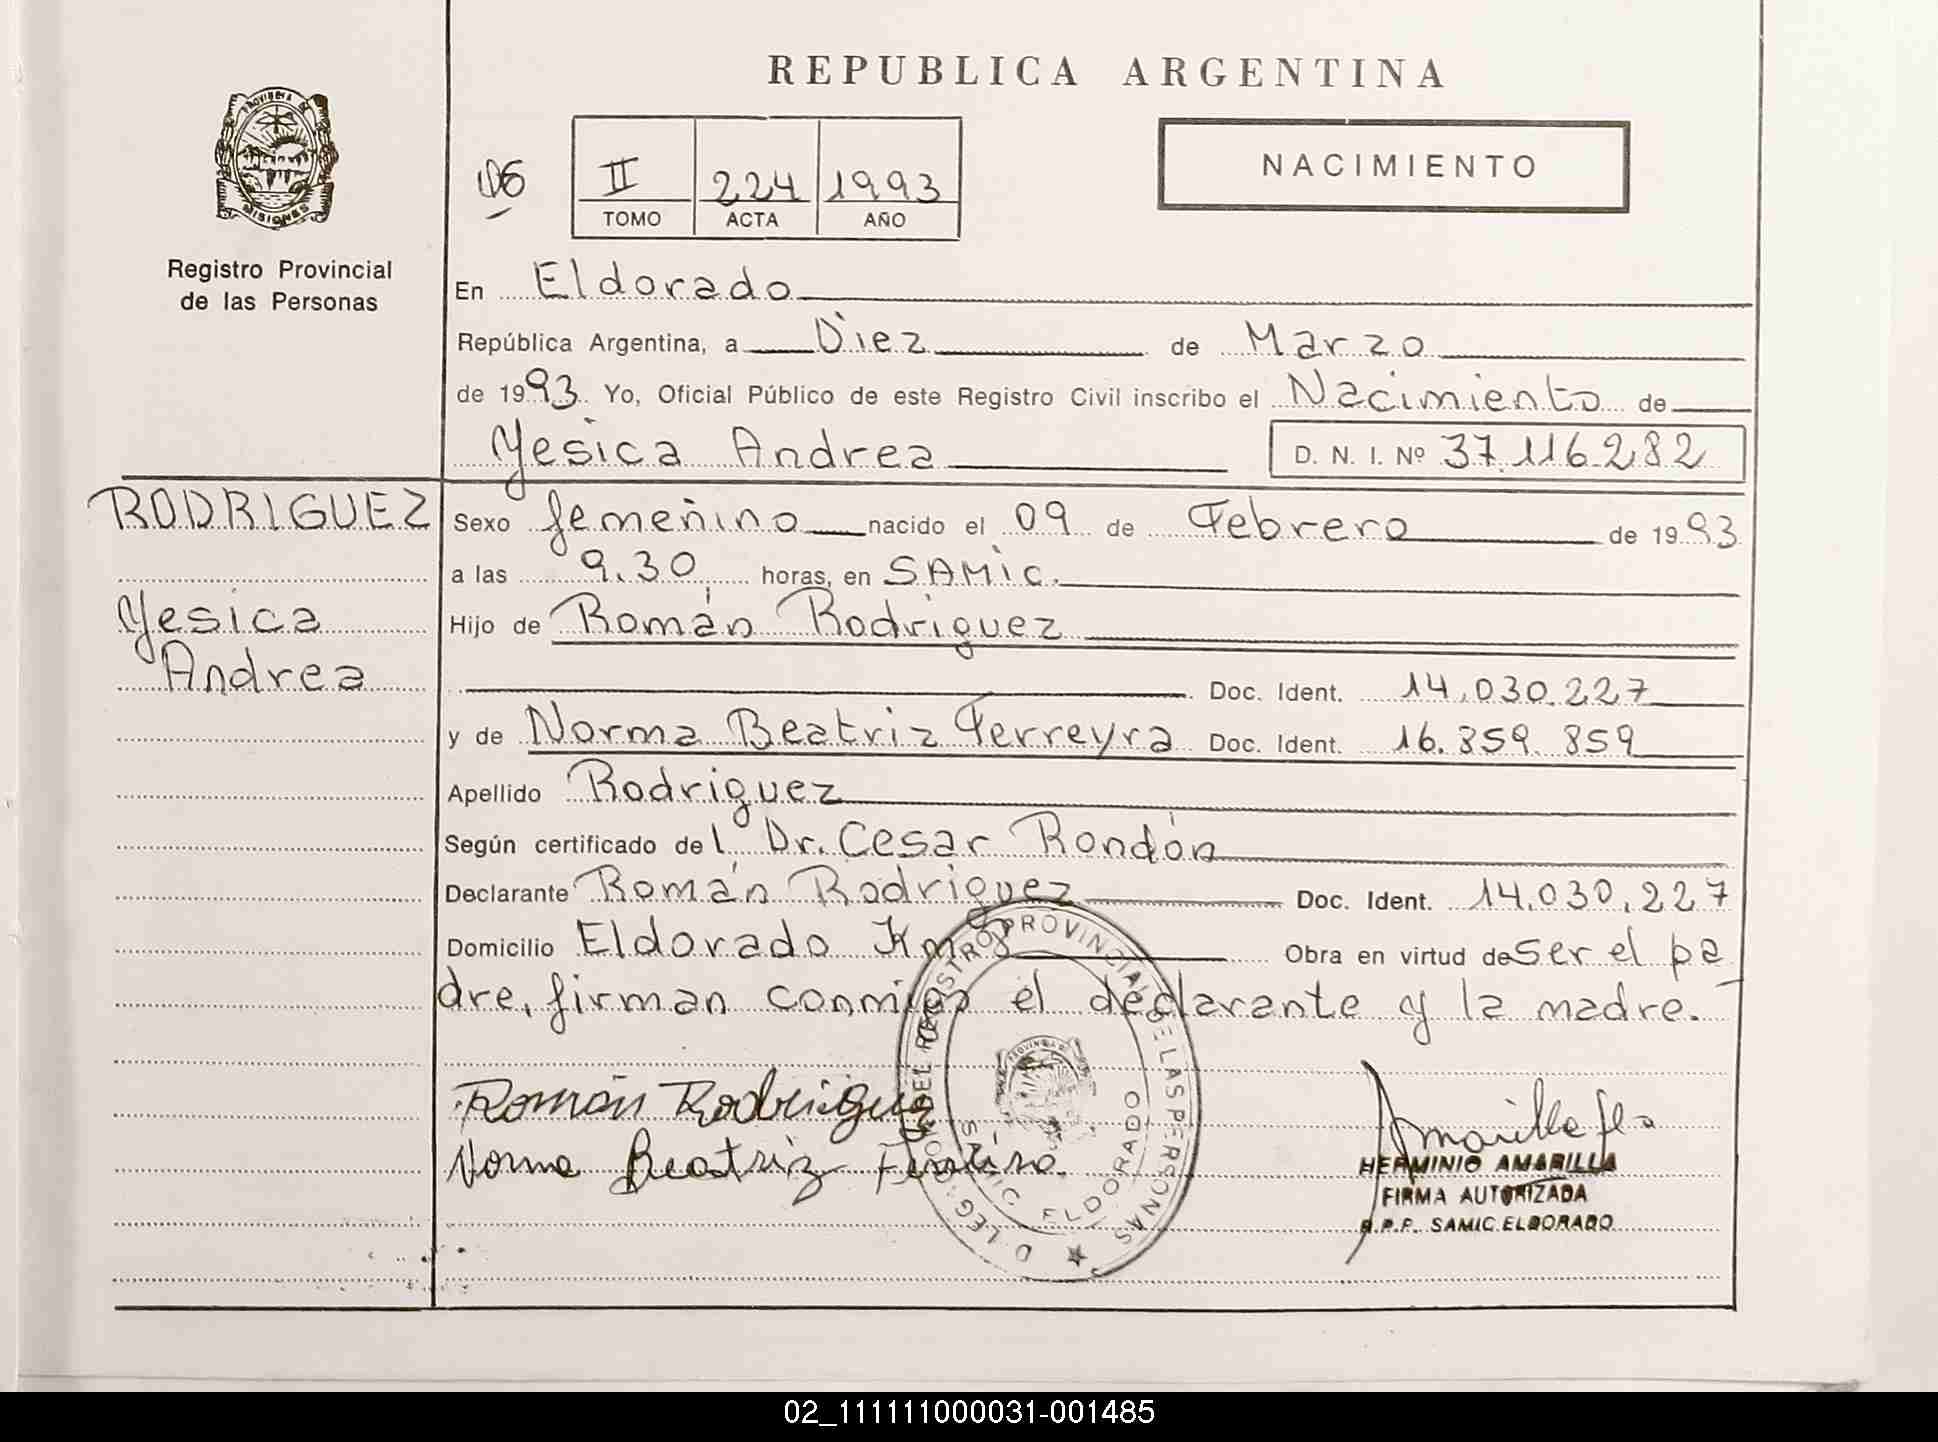 REPUBLICA ARGENTINA
PROVINCIA DE
MISIONES
Registro Provincial
de las Personas
06
II 224 1993
TOMO ACTA AÑO
NACIMIENTO
En Eldorado
República Argentina, a Diez de Marzo
de 1993 Yo, Oficial Público de este Registro Civil inscribo el Nacimiento de
Yesica Andrea D. N. I. Nº 37.116.282
RODRIGUEZ
Yesica
Andrea
Sexo femenino nacido el 09 de Febrero de 1993
a las 9.30 horas, en SAMIC.
Hijo de Román Rodriguez
Doc. Ident. 14.030.227
y de Norma Beatriz Ferreyra Doc. Ident. 16.359.859
Apellido Rodriguez
Según certificado del Dr. Cesar Rondón
Declarante Román Rodriguez Doc. Ident. 14.030.227
Domicilio Eldorado Km 8 Obra en virtud de ser el pa
dre, firman conmigo el declarante y la madre.
Román Rodriguez
Norma Beatriz
DEL REGISTRO PROVINCIAL DE LAS PERSONAS
SAMIC ELDORADO
HERMINIO AMARILLA
FIRMA AUTORIZADA
SAMIC ELDORADO
02_111111000031-001485